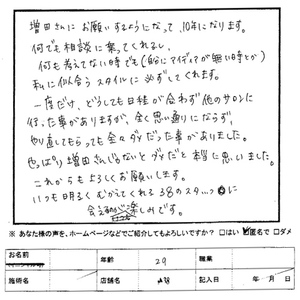 増田さんにお願いするようになって、10年になります。
何でも相談に乗ってくれるし、
何も考えてない時でも(的にアイディアが無い時とか)
私に似合うスタイルに必ずしてくれます。
一度だけ、どうしても日程が合わず他のサロンに
行った事がありますが、全く思い通りにならず、
やり直してもらっても全々ダメだった事がありました。
やっぱり増田さんじゃないとダメだと本当に思いました。
これからもよろしくお願いします。
いつも明るくむかえてくれる38のスタ…に
会えるのが楽しみです。
※ あなた様の声を、ホームページなどでご紹介してもよろしいですか? □はい ☑匿名で □ダメ
お名前 年齢 29 職業
施術名 店舗名 記入日 年 月 日